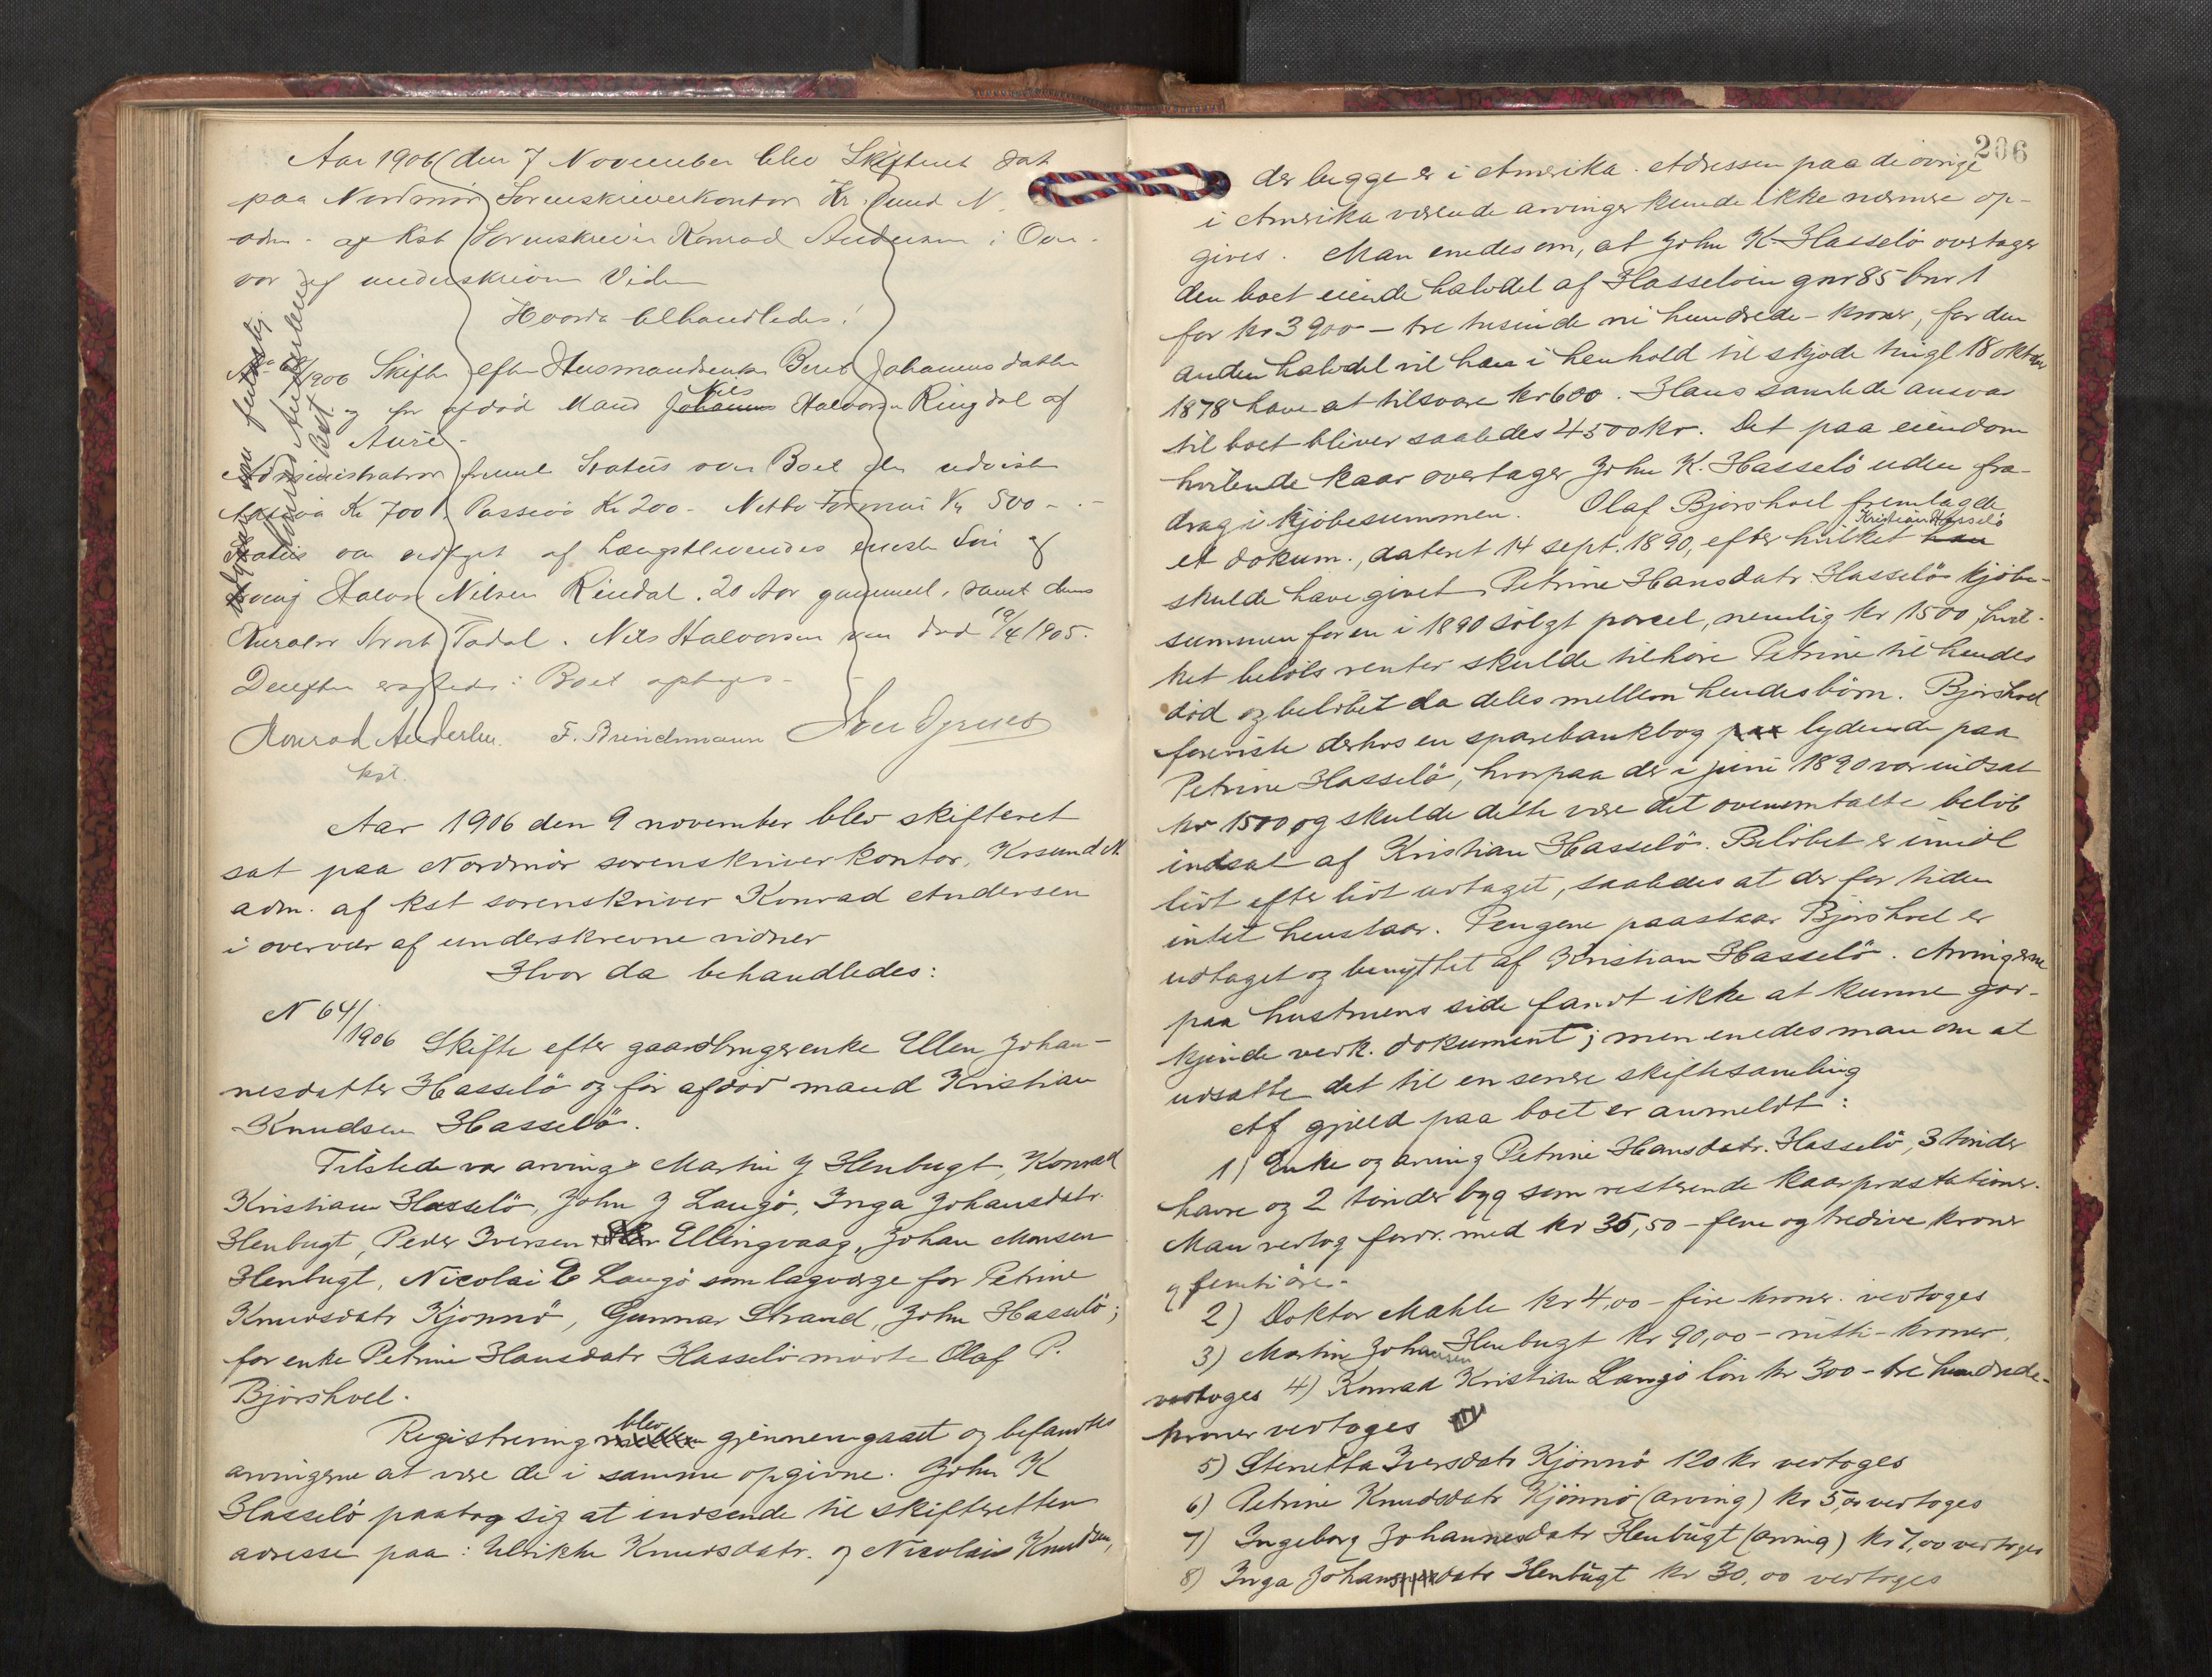 Aar 1906 den 7 November blev Skifteret sat
paa Nordmör Sorenskriverkontor Kr.sund N.
adm. af Kst Sorenskriver Konrad Andersen i Over-
vær af underskrevne Vidner
Hvorda behandledes:
/1906 Skifte efter Husmandsenke Berit Johannesdatter
og før afdød Mand Johannes Nils Halvorsen Ringdal af
Aure.
Administrator fremla Status over Boet der udviste
Activa Kr 700. Passiva Kr 200. Netto Formue Kr 500 -
Status var vedtaget af Længstlevendes eneste Søn og
Arving Halvor Nilsen Rindal, 20 Aar gammel, samt dennes
Kurator Todal. Nils Halvorsen var død 10/4 1905.
Derefter Boet optages
Konrad Andersen F. Brinchmann
kst.
Aar 1906 den 9 november blev skifteret
sat paa Nordmör sorenskriverkontor, Krsund N
adm. af kst sorenskriver Konrad Andersen
i overvær af underskrevne vidner
Hvor da behandledes:
N 64/
1906 Skifte efter gaardbrugerenke Ellen Johan-
nesdatter Hasselö og för afdöd mand Kristian
Knudsen Hasselö.
Tilstede var arving Martin J Henbugt, Konrad
Kristian Hasselö, John J Langö, Inga Johansdatr
Henbugt, Peder Iversen Ellingvaag, Johan Monsen
Henbugt, Nicolai E Langö som lagværge for Petrine
Knudsdatr Kjönnö, Gunnar Strand, John Hasselö;
for enke Petrine Hansdatr Hasselö mödte Olaf P.
Bjørshoel.
Registrering blev gjennemgaaet og befandtes
arvingerne at være de i samme opgivne. John K
Hasselö paatog sig at indsende til skifteretten
adresse paa: Ulrikke Knudsdatr. og Nicolais Knudsen,
206
der begge er i Amerika. Adressen paa de övrige
i Amerika værende arvinger kunde ikke nærmere op-
gives. Man enedes om, at John K Hasselö overtager
den boet eiende halvdel af Hasselöen gnr 85 bnr 1
for kr 3900 - tre tusinde ni hundrede - kroner, for den
anden halvdel vil han i henhold til skjöde tingl 18 oktober
1878 have at tilsvare kr 600. Hans samlede ansvar
til boet bliver saaledes 4500 kr. Det paa eiendom
hvilende kaar overtager John K. Hasselö uden fra-
drag i kjöbesummen. Olaf Bjørshoel fremlagde
et dokum., dateret 14 sept. 1890, efter hvilket han Kristian Hasselö
skulde have givet Petrine Hansdatr Hasselö kjöbe-
summen for en i 1890 solgt parcel, nemlig kr 1500, hvil-
ket belöbs renter skulde tilhöre Petrine til hendes
död og belöbet da deles mellem hendes börn. Bjørshoel
foreviste derhos en sparebankbog lydende paa
Petrine Hasselö, hvorpaa der i juni 1890 var indsat
kr 1500 og skulde dette være det ovenomtalte belöb
indsat af Kristian Hasselö. Belöbet er imidl
lidt efter lidt udtaget, saaledes at der for tiden
intet henstaar. Pengene paastaar Bjørshoel er
udtaget og benyttet af Kristian Hasselö. Arvingerne
paa hustruens side fandt ikke at kunne god-
kjende vedk. dokument; men enedes man om at
udsætte det til en senere skiftesamling
Af gjæld paa boet er anmeldt:
1) Enke og arving Petrine Hansdatr. Hasselö, 3 tönder
havre og 2 tönder byg som resterende kaarpræstationer.
Man vedtog fordr. med kr 35,50 - fem og tredive kroner
og femti öre.
2) Doktor Mahle kr 4,00 - fire kroner. vedtoges
3) Martin Johansen Henbugt kr 90,00 - nitti - kroner,
vedtoges 4) Konrad Kristian Langö lön kr 300 - tre hundrede-
kroner vedtoges
5) Stinetta Iversdatr Kjönnö 120 kr vedtoges
6) Petrine Knudsdatr Kjönnö (arving) kr 5,00 vedtoges
7) Ingeborg Johannesdatr Henbugt (arving) kr 7,00 vedtoges
8) Inga Johansdatr Henbugt kr 30,00 vedtoges